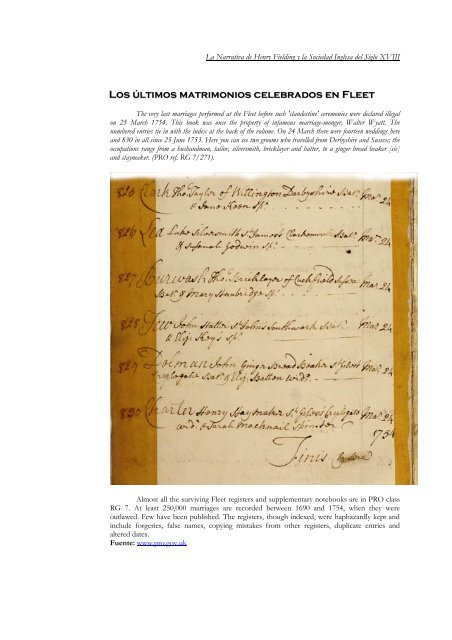 La Narrativa de Henry Fielding y la Sociedad Inglesa del Siglo XVIII
Los últimos matrimonios celebrados en Fleet
The very last marriages performed at the Fleet before such 'clandestine' ceremonies were declared illegal
on 25 March 1754. This book was once the property of infamous marriage-monger, Walter Wyatt. The
numbered entries tie in with the index at the back of the volume. On 24 March there were fourteen weddings here
and 830 in all since 25 June 1753. Here you can see two grooms who travelled from Derbyshire and Sussex; the
occupations range from a husbandman, tailor, silversmith, bricklayer and hatter, to a ginger bread beaker [sic]
and staymaker. (PRO ref. RG 7/271).
Clark Tho Taylor of Wittington Derbyshire Mar 24
& Jane
826 Lea Luke Silversmith St James's Clerkenwell Mar 24
& Susanah Godwin sp
827 Burwash Tho Bricklayer of Cuckfield Mar 24
& Mary sp
828 John Hatter St Johns Southwark Mar 24
& Eliz Keys sp
829 Dolman John Ginger Bread Beaker St Giles's Mar 24
Cripplegate & Eliz Batton wid
830 Charter Henry Staymaker St Giles's Criplegate Mar 24
wid & Sarah Spinster 1754
Finis
Almost all the surviving Fleet registers and supplementary notebooks are in PRO class
RG 7. At least 250,000 marriages are recorded between 1690 and 1754, when they were
outlawed. Few have been published. The registers, though indexed, were haphazardly kept and
include forgeries, false names, copying mistakes from other registers, duplicate entries and
altered dates.
Fuente: www.pro.gov.uk